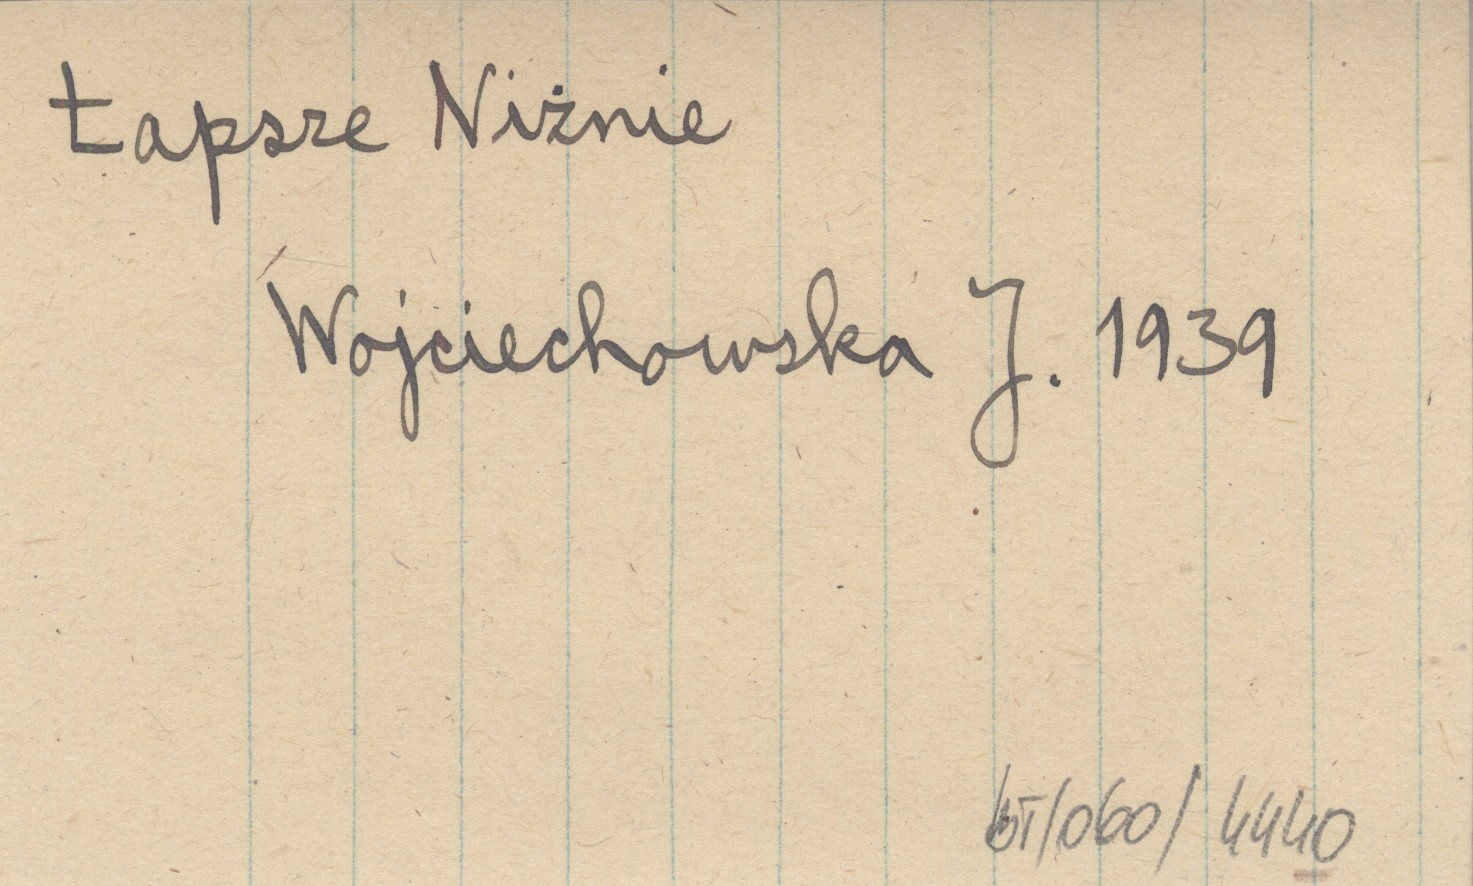 Łapsze Niżnie
Wojciechowska J. 1939
/060/ 4440